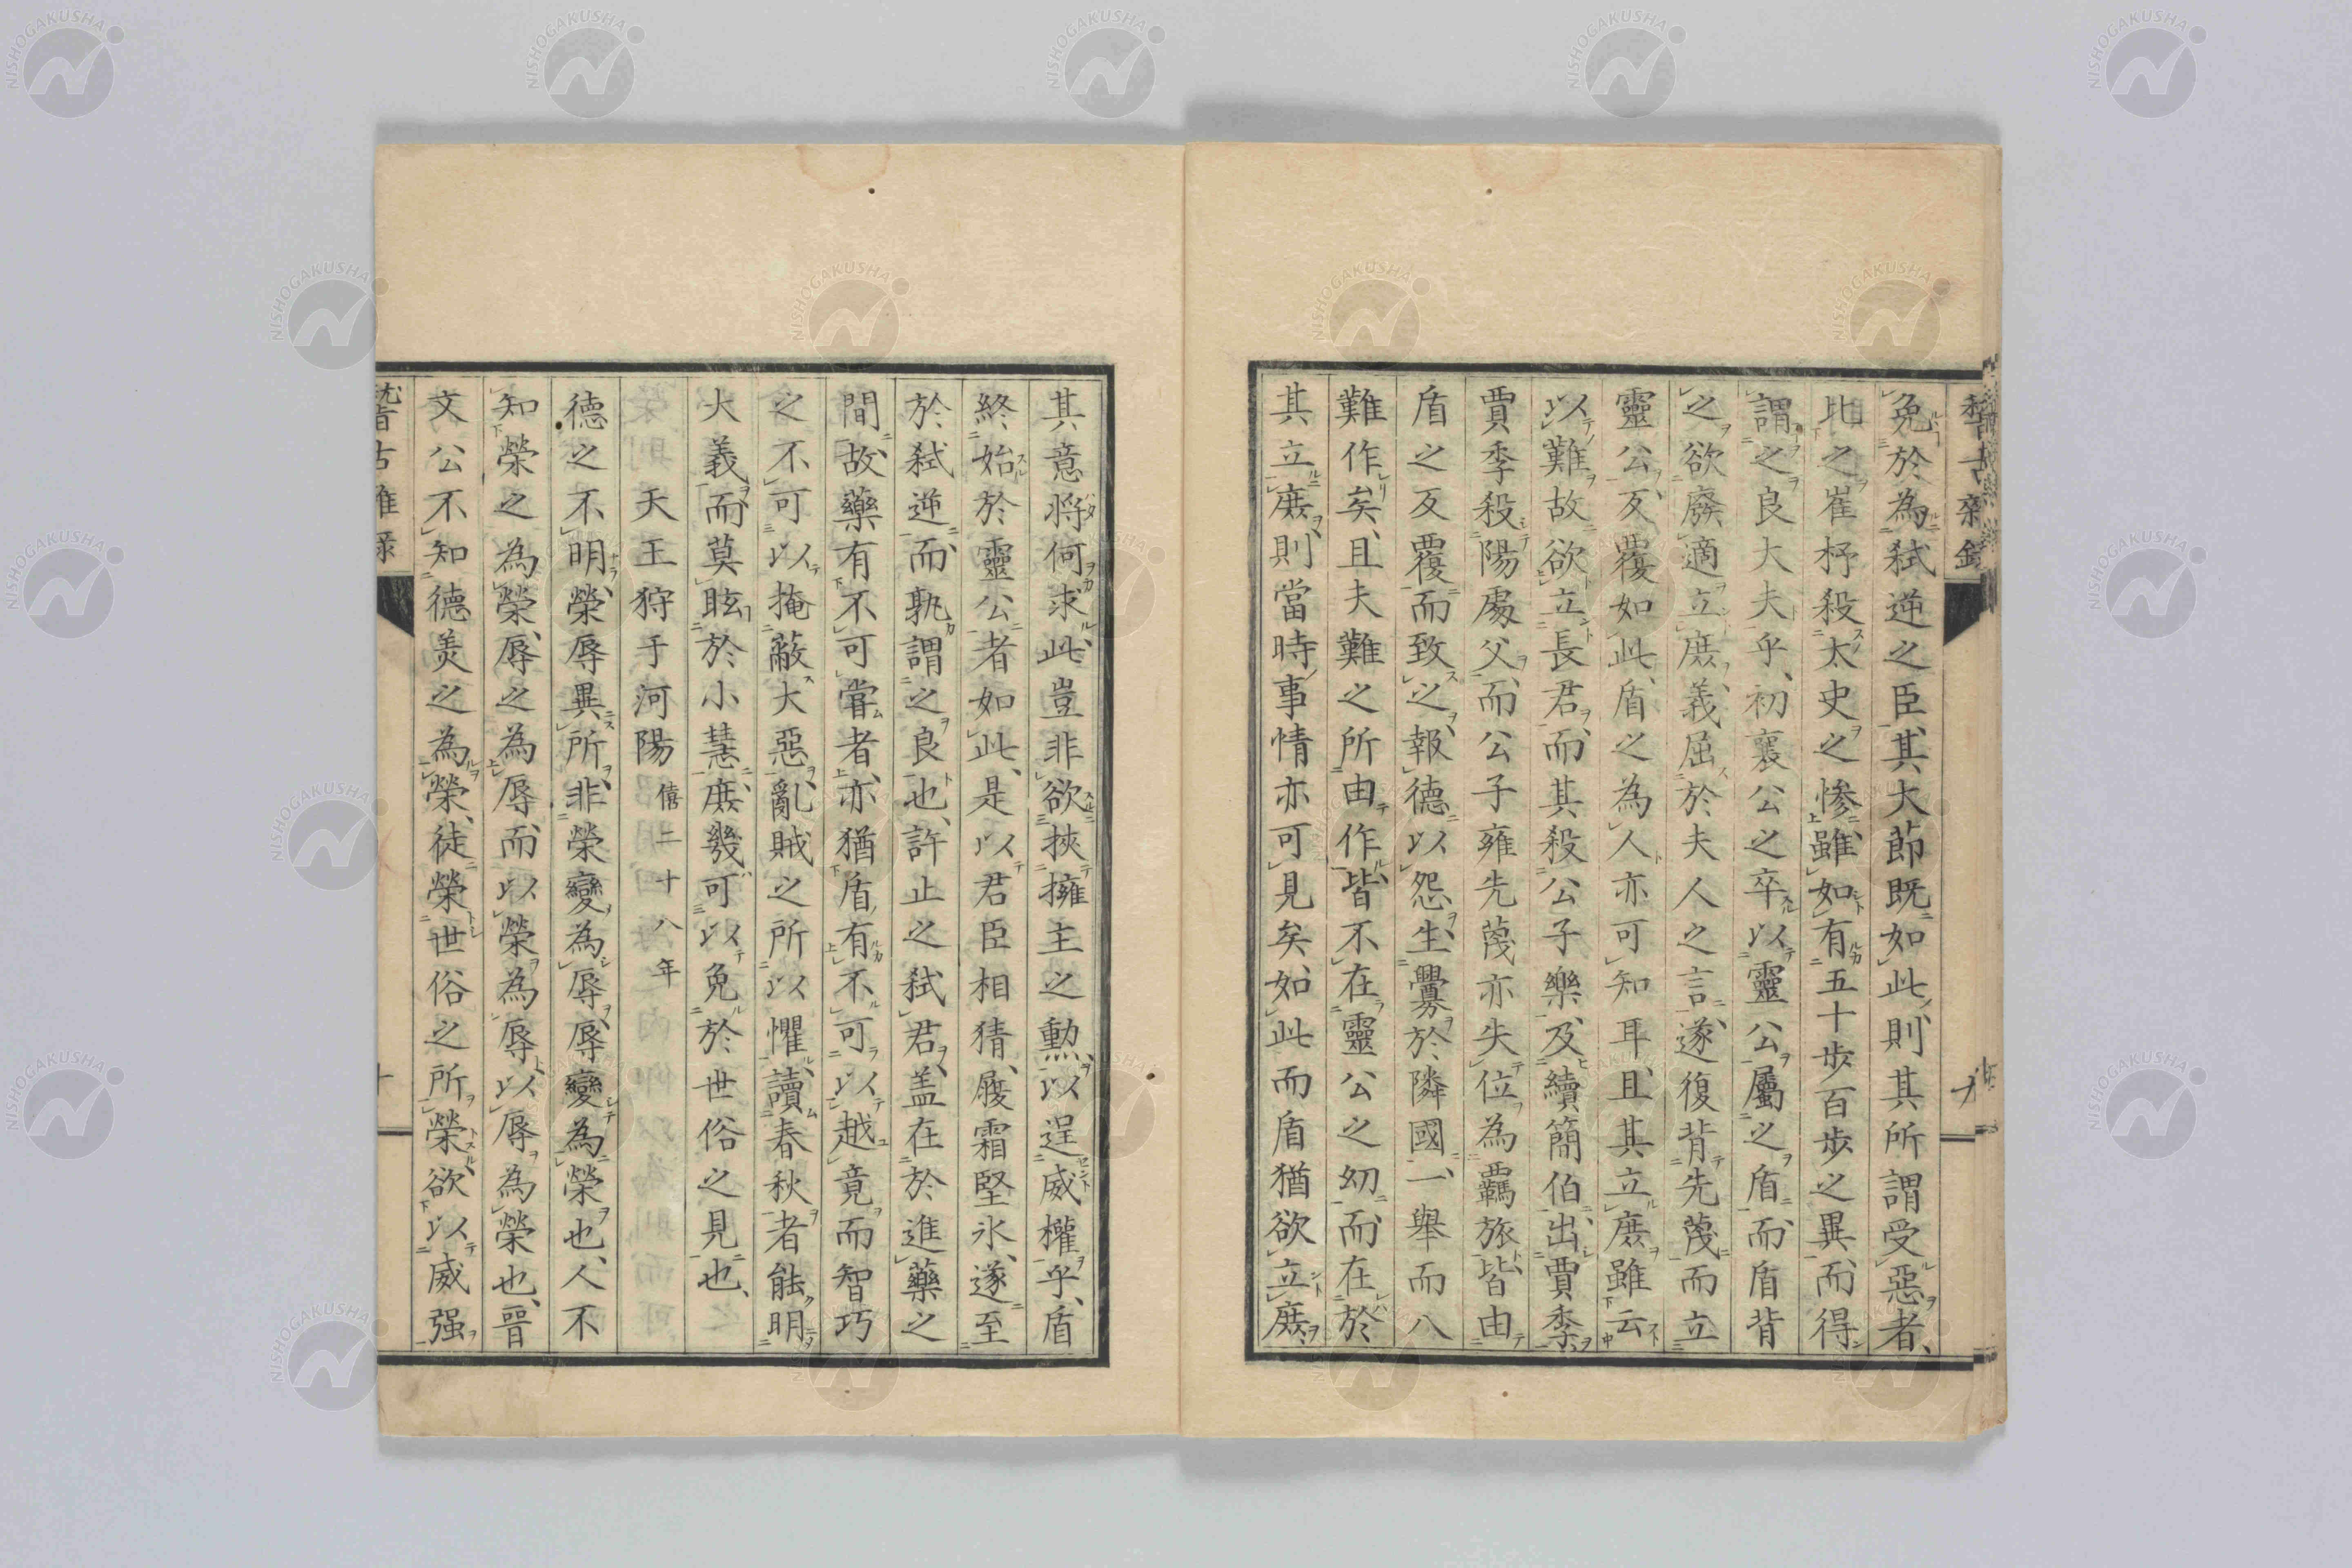 免於為弒逆之臣、其大節既如此、則其所謂受惡者、
比之崔杼殺太史之慘、雖如有五十歩百歩之異、而得
謂之良大夫乎、初襄公之卒、以靈公屬之盾、而盾背
之欲廢適立庶、義屈於夫人之言、遂復背先蔑而立
靈公、反覆如此、盾之為人亦可知耳、且其立庶雖云
以難故欲立長君、而其殺公子樂、及續簡伯出賈季、
賈季殺陽處父、而公子雍先蔑亦失位為羈旅、皆由
盾之反覆而致之、報德以怨、生釁於隣國、一舉而八
難作矣、且夫難之所由作、皆不在靈公之幼、而在於
其立庶、則當時事情亦可見矣、如此而盾猶欲立庶、
其意將何求此、豈非欲挾擁主之勲、以逞威權乎、盾
終始於靈公者如此、是以君臣相猜、履霜堅氷、遂至
於弒逆、而孰謂之良也、許止之弒君、盖在於進藥之
間、故藥有不可嘗者、亦猶盾有不可以越竟、而智巧
之不可以掩蔽大惡、亂賊之所以懼、讀春秋者能明
大義、而莫眩於小慧、庶幾可以免於世俗之見也、
天王狩于河陽 僖二十八年
德之不明、榮辱異所、非榮變為辱、辱變為榮也、人不
知榮之為榮、辱之為辱、而以榮為辱、以辱為榮也、晉
文公不知德美之為榮、徒榮世俗之所榮、欲以威强
稽古雜録
十
NISHOGAKUSHA